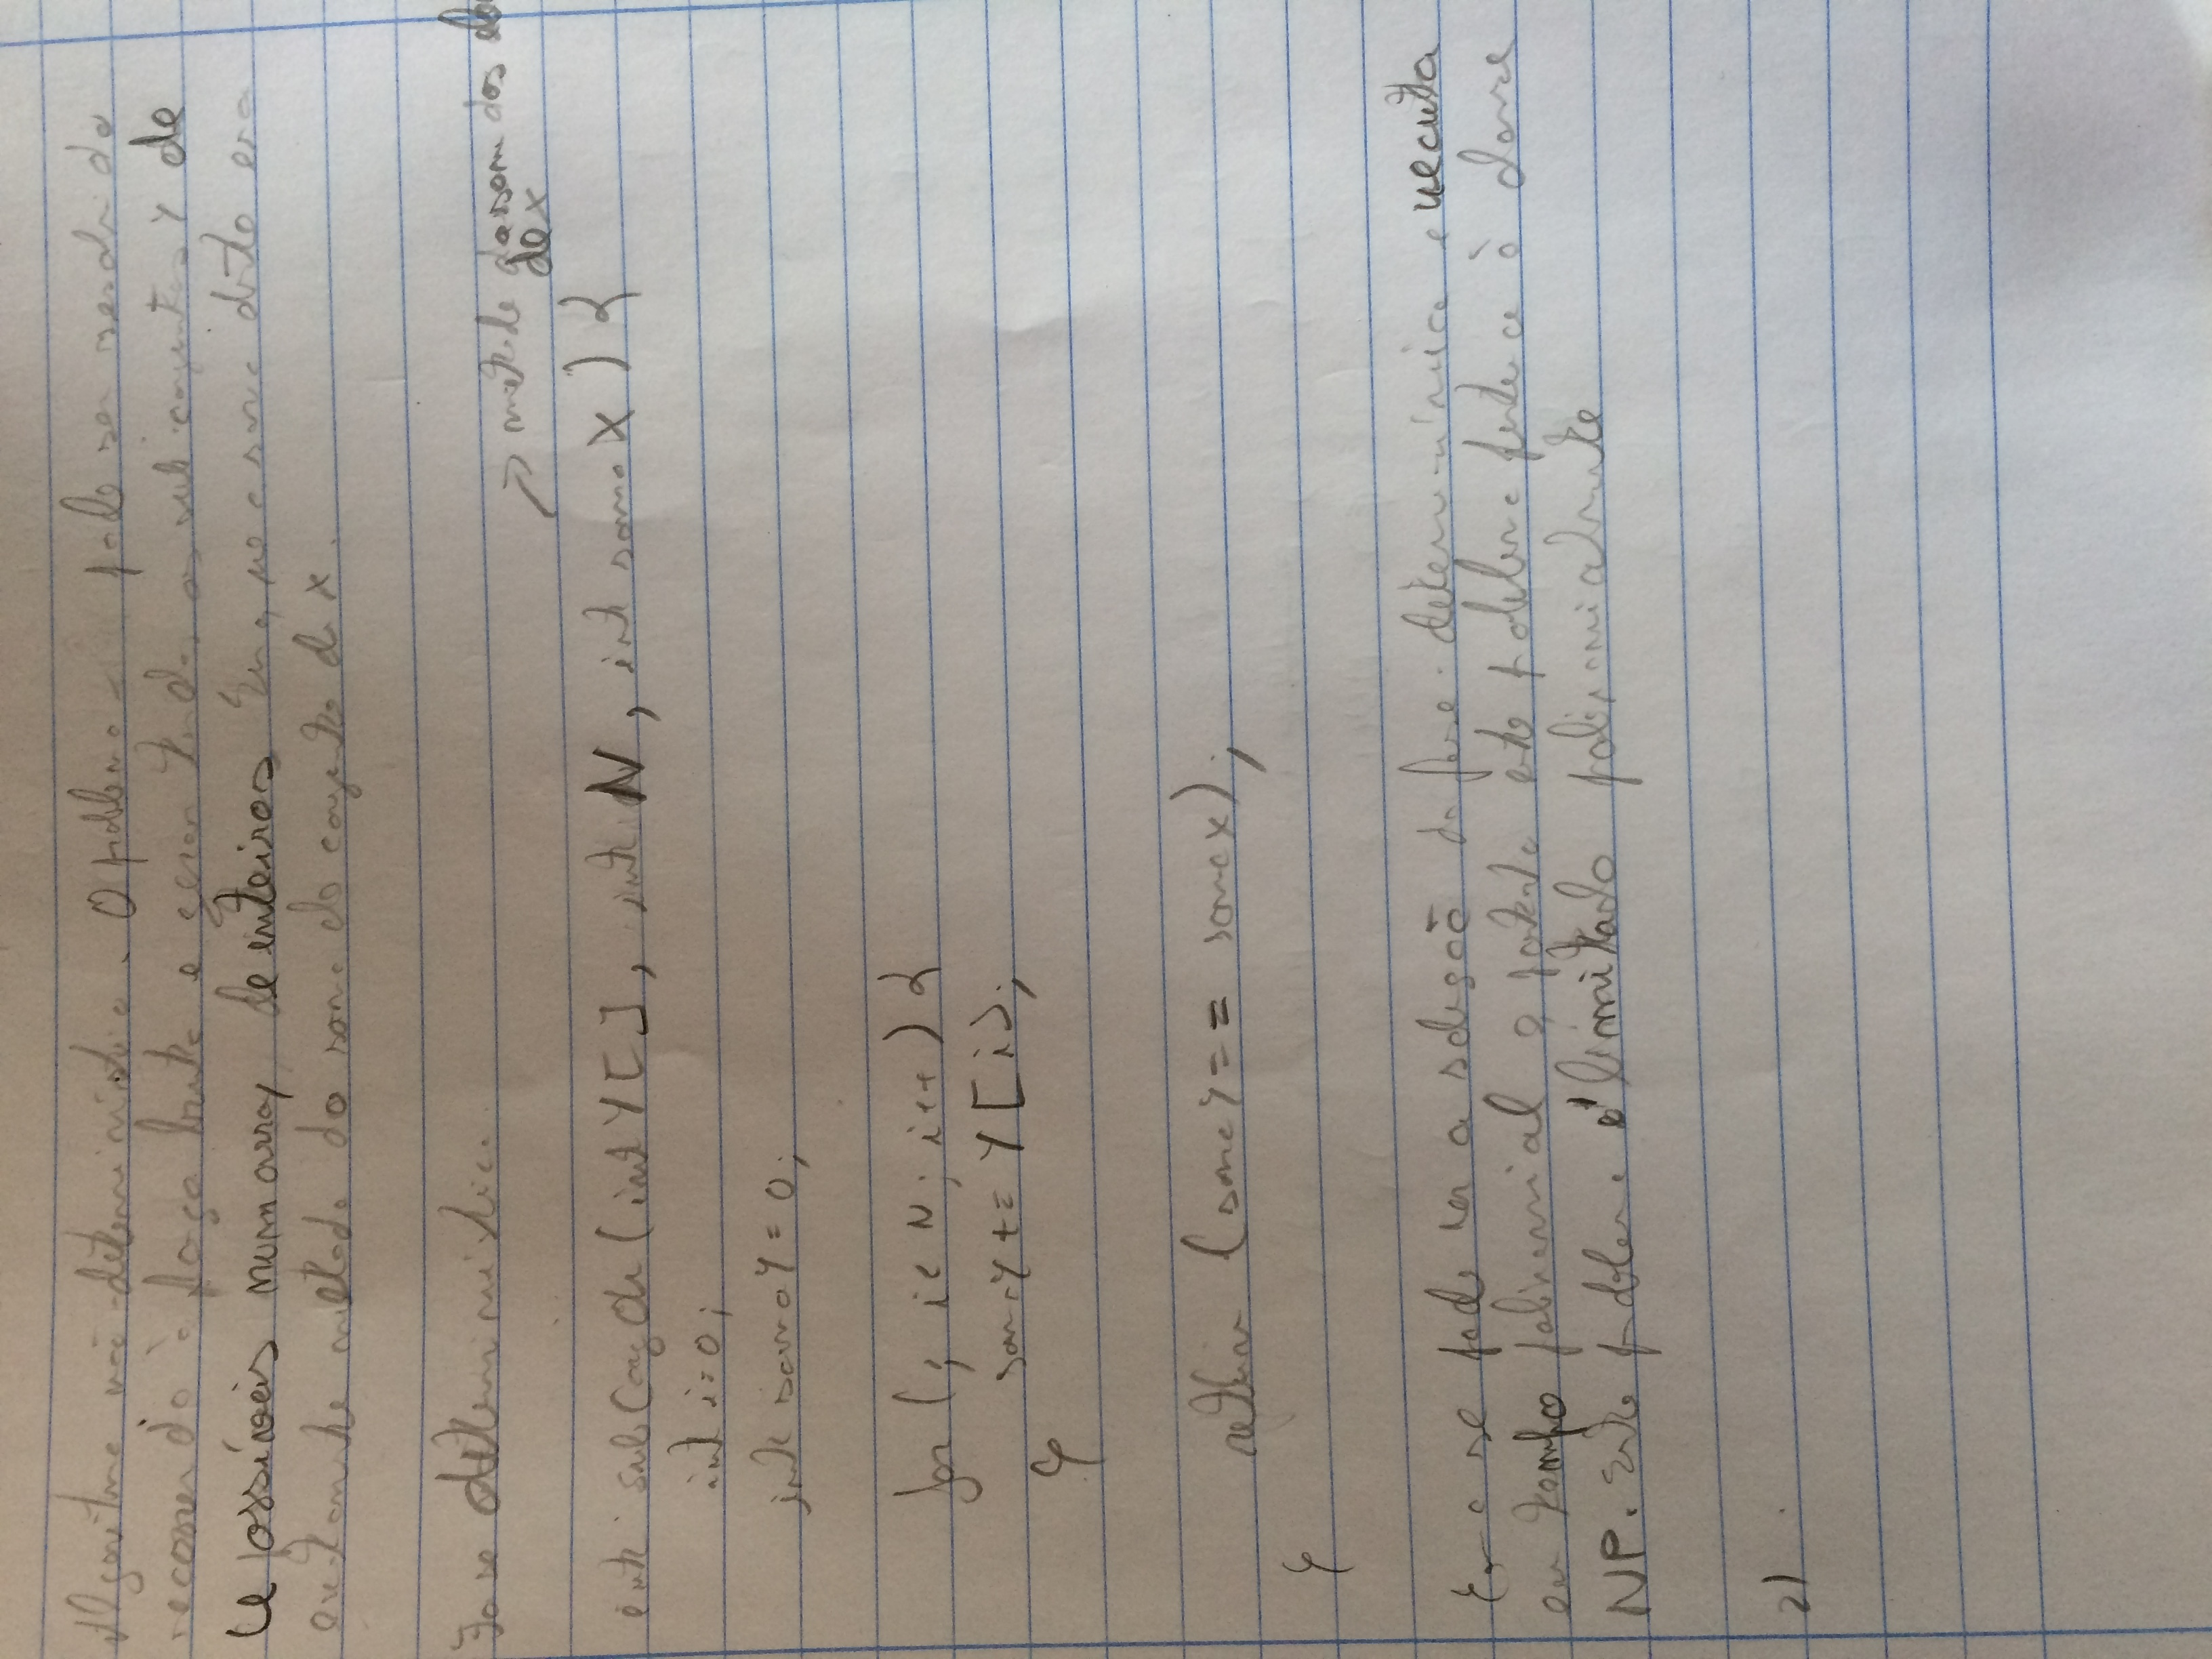 Algoritmo não-determinístico. O problema pode ser resolvido
recorrendo à força bruta e gerar todos os subconjuntos Y de
possíveis num array de inteiros em que a soma disto era
exatamente metade da soma do conjunto de x.
Fase determinística.
metade da soma dos
de x
int subConj (int Y[], int N, int somaX) {
int i=0;
int somaY = 0;
for (; i< N; i++) {
somaY += Y[i];
}
return (somaY == somaX);
}
Como se pode ver a solução da fase determinística executa
em tempo polinomial e portanto este problema pertence à classe
NP. Este problema é limitado polinomialmente
2)